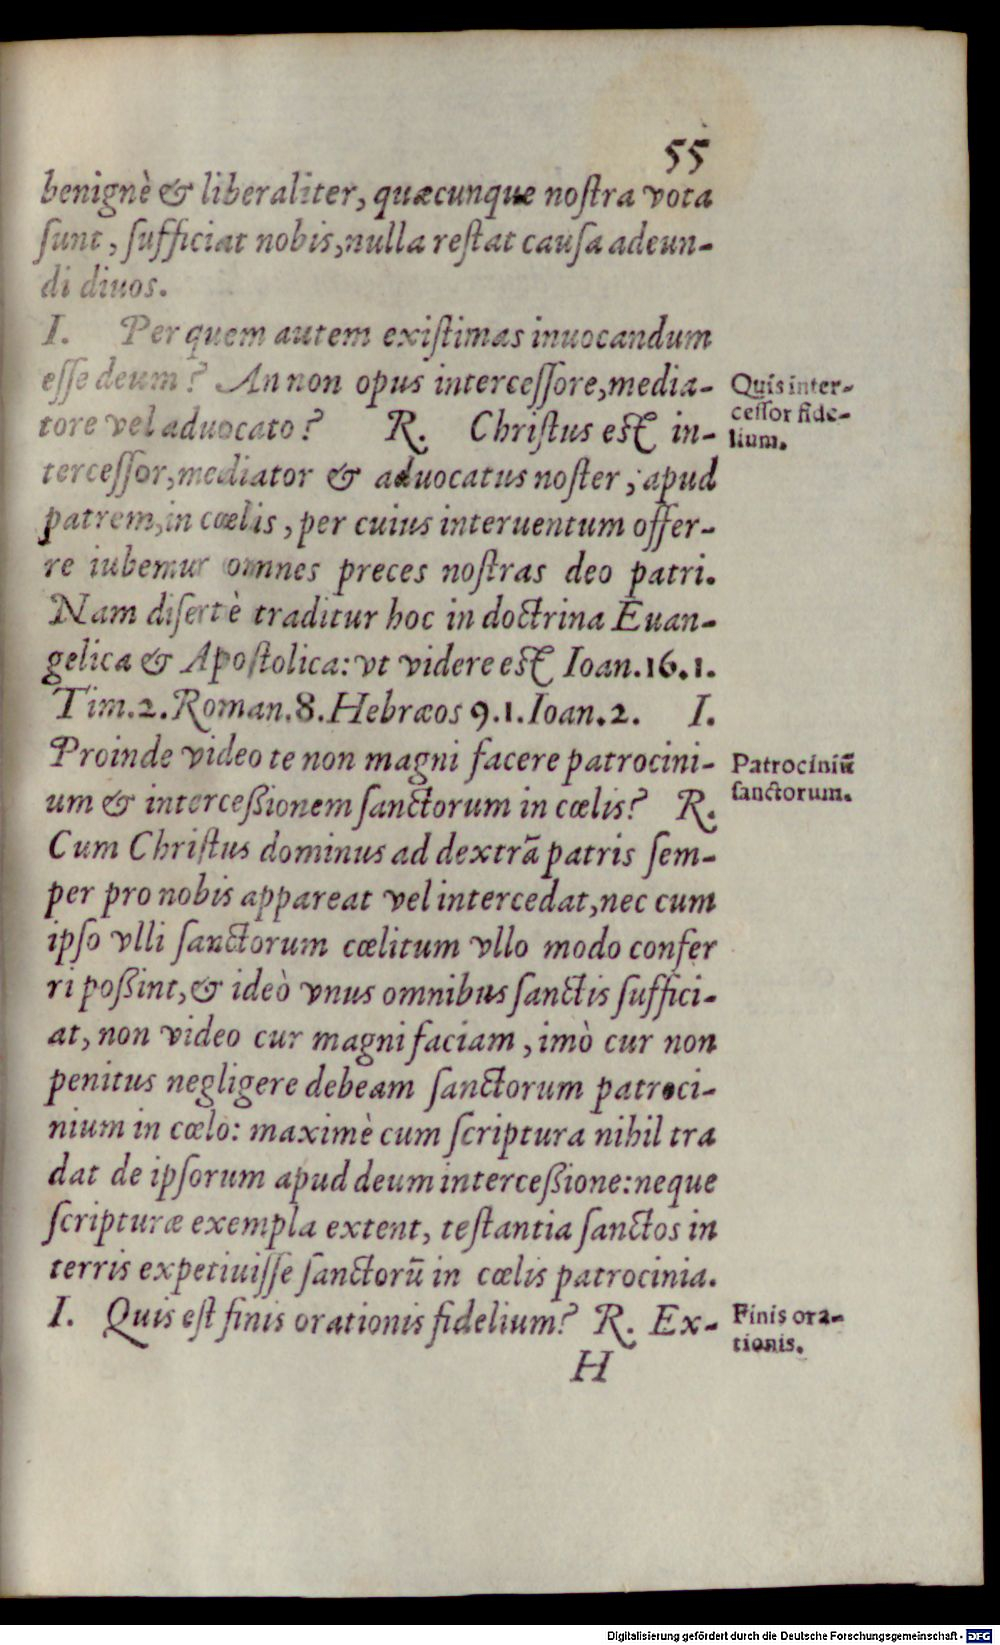 55
benignè & liberaliter, quæcunque nostra vota
sunt, sufficiat nobis, nulla restat causa adeun-
di diuos.
I. Per quem autem existimas inuocandum
esse deum? An non opus intercessore, media-
tore vel aduocato? R. Christus est in-
Quis inter-
cessor fide-
lium.
tercessor, mediator & aduocatus noster, apud
patrem, in cœlis, per cuius interuentum offer-
re iubemur omnes preces nostras deo patri.
Nam disertè traditur hoc in doctrina Euan-
gelica & Apostolica: vt videre est Ioan.16.1.
Tim.2. Roman.8. Hebræos 9.1. Ioan.2. I.
Proinde video te non magni facere patrocini-
um & interceßionem sanctorum in cœlis? R.
Patrociniū
sanctorum.
Cum Christus dominus ad dextrā patris sem-
per pro nobis appareat vel intercedat, nec cum
ipso vlli sanctorum cœlitum vllo modo confer
ri poßint, & ideò vnus omnibus sanctis suffici-
at, non video cur magni faciam, imò cur non
penitus negligere debeam sanctorum patroci-
nium in cœlo: maximè cum scriptura nihil tra
dat de ipsorum apud deum interceßione: neque
scripturæ exempla extent, testantia sanctos in
terris expetiuisse sanctorū in cœlis patrocinia.
I. Quis est finis orationis fidelium? R. Ex-
Finis ora-
tionis.
H
Digitalisierung gefördert durch die Deutsche Forschungsgemeinschaft - DFG